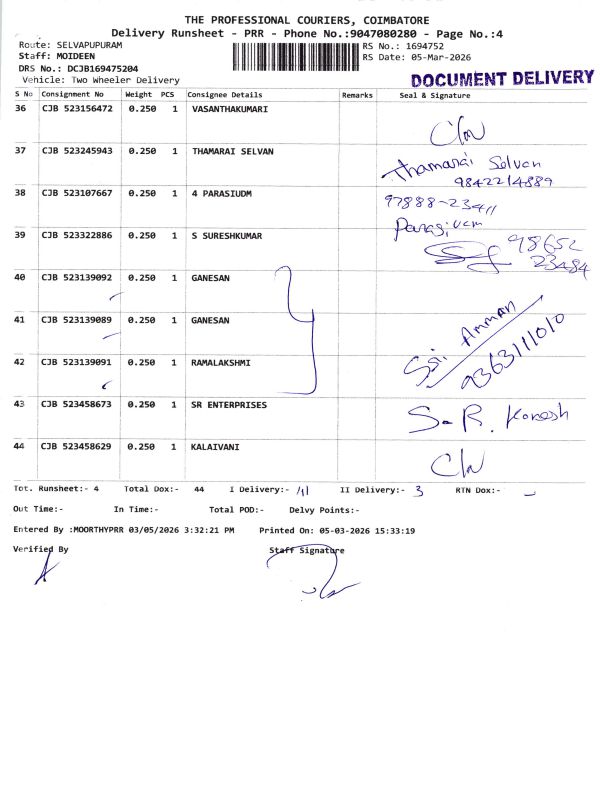 THE PROFESSIONAL COURIERS, COIMBATORE
Delivery Runsheet - PRR - Phone No.:9047080280 - Page No.:4
Route: SELVAPUPURAM
Staff: MOIDEEN
DRS No.: DCJB169475204
Vehicle: Two Wheeler Delivery
RS No.: 1694752
RS Date: 05-Mar-2026
DOCUMENT DELIVERY
S No Consignment No Weight PCS Consignee Details Remarks Seal & Signature
36 CJB 523156472 0.250 1 VASANTHAKUMARI
37 CJB 523245943 0.250 1 THAMARAI SELVAN
Thamarai Selvan
9842214889
38 CJB 523107667 0.250 1 4 PARASIUDM
97888-23411
39 CJB 523322886 0.250 1 S SURESHKUMAR
98652
23484
40 CJB 523139092 0.250 1 GANESAN
41 CJB 523139089 0.250 1 GANESAN
Sri Amman
9363111010
42 CJB 523139091 0.250 1 RAMALAKSHMI
43 CJB 523458673 0.250 1 SR ENTERPRISES
S-R.
44 CJB 523458629 0.250 1 KALAIVANI
Tot. Runsheet:- 4 Total Dox:- 44 I Delivery:- 41 II Delivery:- 3 RTN Dox:- -
Out Time:- In Time:- Total POD:- Delvy Points:-
Entered By :MOORTHYPRR 03/05/2026 3:32:21 PM Printed On: 05-03-2026 15:33:19
Verified By Staff Signature